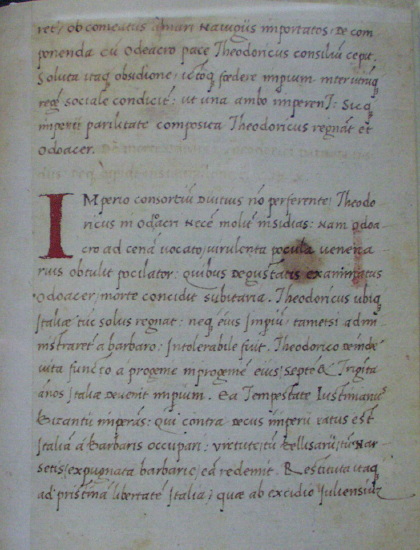 ret/ ob comeatus a mari Nauigiis importatos, De com
ponenda cū Odeacro pace Theodoricus consiliū cepit.
Soluta itaq obsidione, ictoq foedere impium inter utrūq
regē sociale condicit: ut una ambo imperent: Sicq
imperii parilitate composita Theodoricus regnat et
Odoacer.
IMperio consortiū Diutius nō perferente, Theodo
ricus in Odoacri Necē molit insidias: Nam Odoa
cro ad cenā uocato, uirulenta pocula Venena
rius obtulit pocilator: quibus Degustatis examinatus
Odoacer, morte concidit subitaria. Theodoricus ubiq
Italiae tūc solus regnat: neq eius Impiū, tametsi admi
nistraret a barbaro: Intolerabile fuit. Theodorico deinde
uita functo a progenie in progeniē eius, septē & Trigīta
ānos Italiae devenit impium. Ea Tempestate Iustinianus
Bizantii imperās: qui contra decus imperii ratus est
Italiā a Barbaris occupari: uirtute, tū Bellisarii, tū Nar
setis, expugnata barbarie, eā redemit. Restituta itaq
ad pristinā libertatē Italia, quae ab excidio Iuliensiū